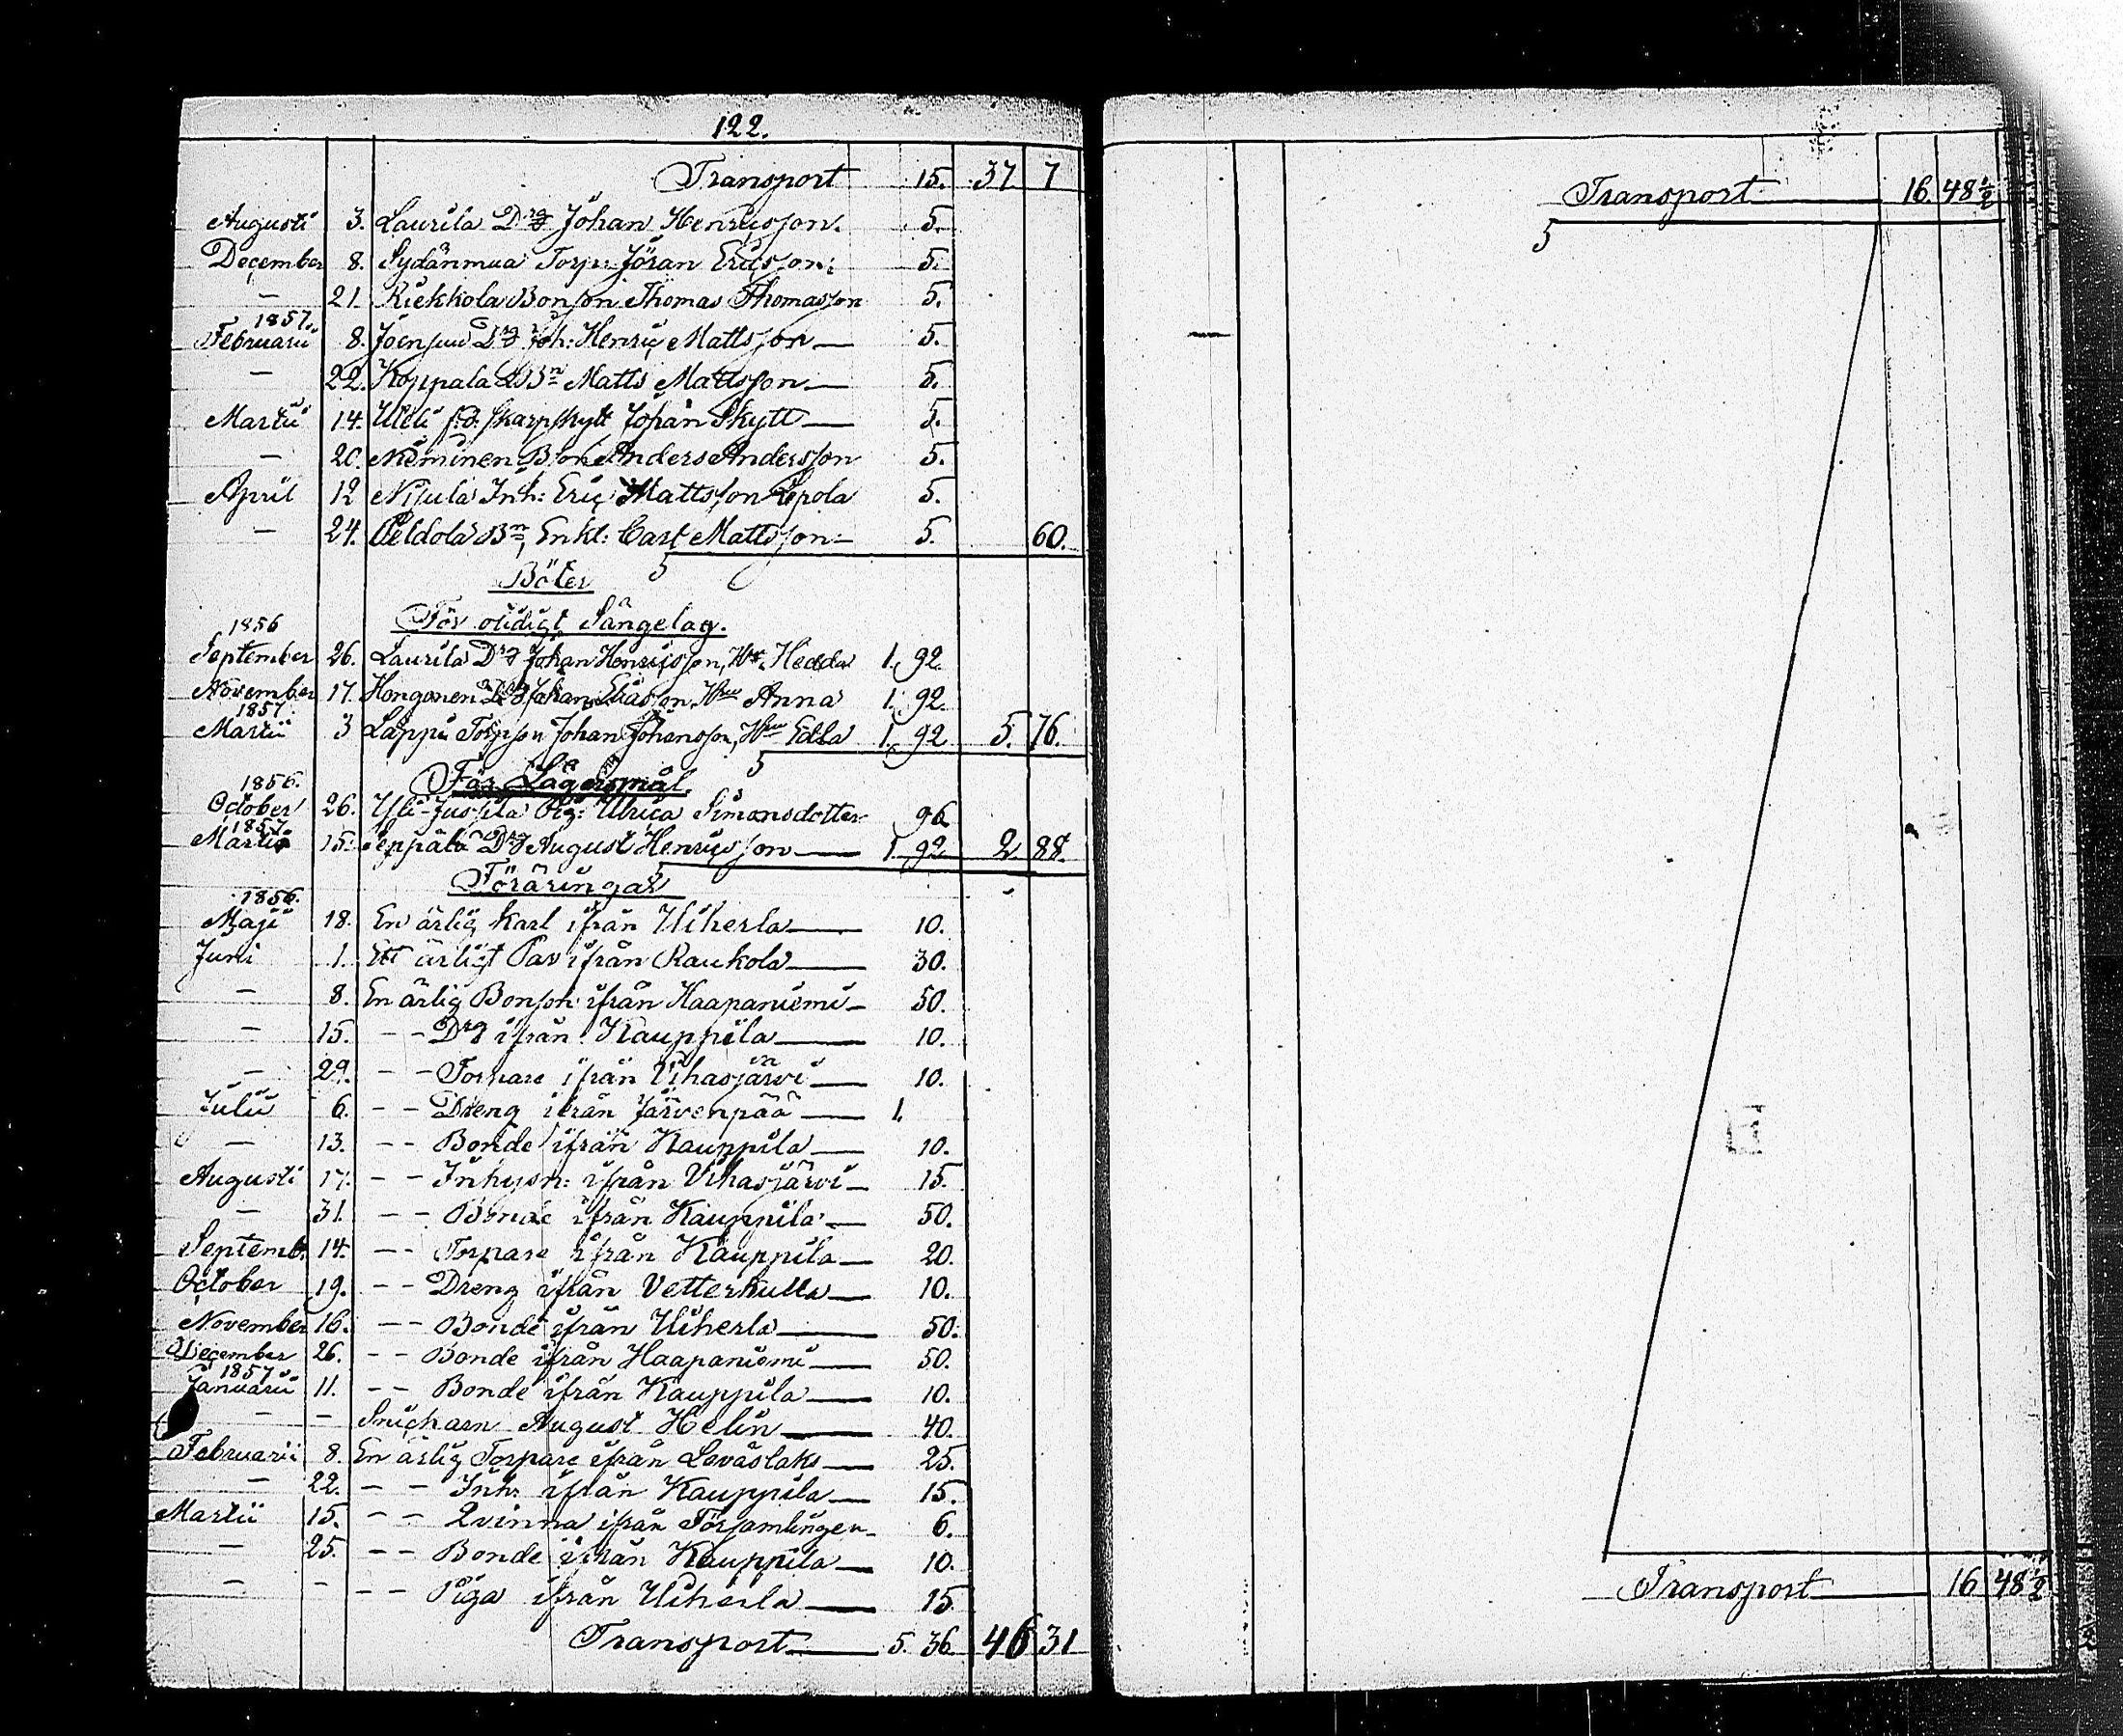 122.
Transport 15. 37. 7
Augusti 3. Laurila Drg Johan Henricsson. 5.
December 8. Sydänmua Torp: Jöran Ericsson: 5.
— 21. Riekkola Bonson Thomas Thomasson 5.
1857.
Februarii 8. Joensuu Drg Joh: Henric Mattsson — 5.
— 22. Koppala Bn Matts Mattsson — 5.
Martii 14. Uleli f.d. Skarpskytt Johan Skytt — 5.
— 20. Nieminen Bson Anders Andersson 5.
April 12 Nijula Inh: Eric Mattsson Lepola 5.
— 24. Peldola Bn, Enkl: Carl Mattsson — 5. 60.
5
Böter
För otidigt Sängelag.
1856
September 26. Laurila Drg Johan Henricsson, Hu Hedda 1. 92.
November 17. Hongonen Drg Johan Eliasson, Hu Anna 1. 92.
1857.
Martii 3 Lappi Torpson Johan Johansson, Hu Edla 1. 92 5. 76.
5
För Lägersmål.
1856.
October 26. Yli-Jussila Pig: Ulrica Simonsdotter 96
1857
Martii 15. Seppälä Drg August Henricsson — 1. 92 2. 88.
5
Föräringar
1856.
Maji 18. En ärlig Karl ifrån Uiherla — 10.
Juni 1. Ett ärligt Par ifrån Raukola — 30.
— 8. En ärlig Bonson ifrån Haapaniemi — 50.
— 15. – – Drg ifrån Kauppila — 10.
— 29. – – Torpare ifrån Vihasjärvi — 10.
Julii 6. – – Dreng ifrån Järvenpää — 1.
— 13. – – Bonde ifrån Kauppila — 10.
Augusti 17. – – Inhysn: ifrån Vihasjärvi — 15.
— 31. – – Bonde ifrån Kauppila — 50.
Septemb. 14. – – Torpare ifrån Kauppila — 20.
October 19. – – Dreng ifrån Vetterkulla — 10.
November 16. – – Bonde ifrån Uiherla — 50.
December 26. – – Bonde ifrån Haapaniemi — 50.
1857
Januarii 11. – – Bonde ifrån Kauppila — 10.
— – Snickarn August Helin — 40.
Februarii 8. En ärlig Torpare ifrån Leväslaks — 25.
— 22. – – Inh: ifrån Kauppila — 15.
Martii 15. – – Qvinna ifrån Församlingen — 6.
— 25. – – Bonde ifrån Kauppila — 10.
— – – – Piga ifrån Uiherla — 15
Transport — 5. 36. 46 31
Transport — 16. 48 1/2
5
Transport — 16 48 1/2